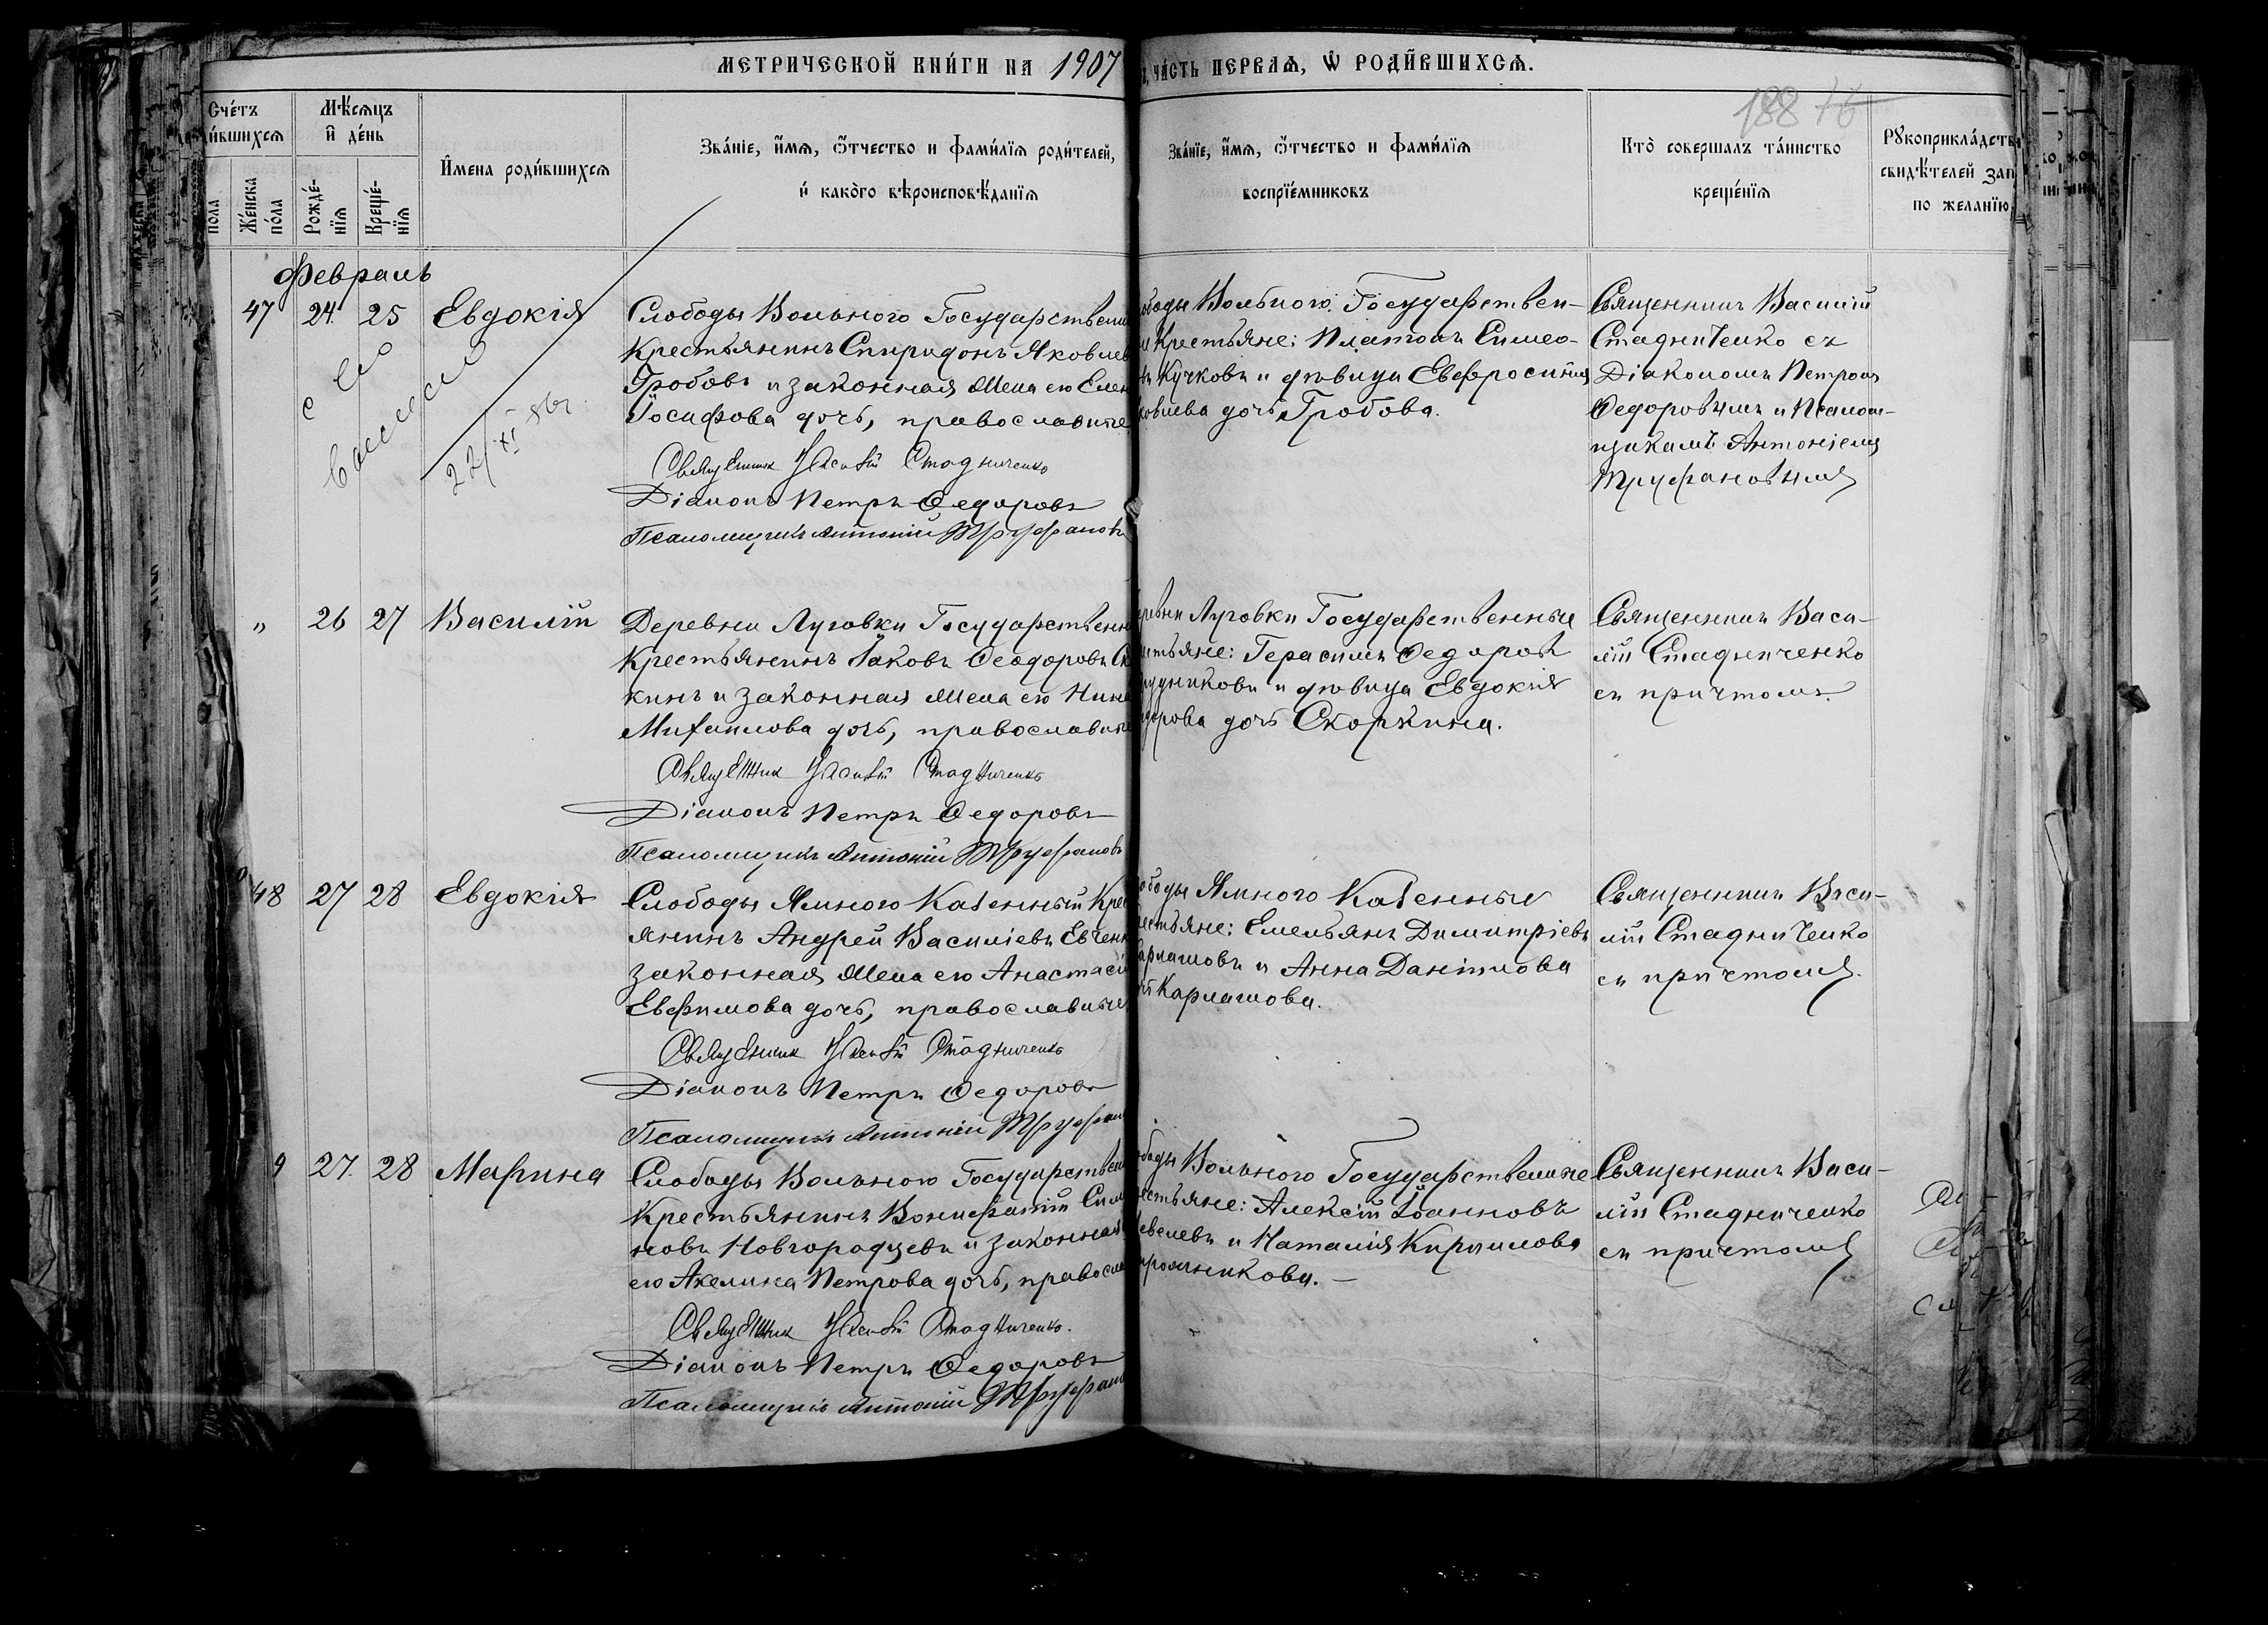 МЕТРИЧЕСКОЙ КНИ́ГИ НА 1907
ЧА́СТЬ ПЕРВАѦ, Ѽ РОДИ́ВШИХСѦ.
188
Сче́тъ
и́вшихсѧ
Мѣ́сѧцъ
и҆ де́нь
пола
Же́нска
по́ла
Рожде́-
нїѧ
Креще́-
нїѧ
И҆мена роди́вшихсѧ
Зва́нїе, и҆́мѧ, ѻ҆́тчество и фами́лїѧ роди́телей,
и҆ како́го вѣроисповѣ́данїѧ
Зва́нїе, и҆́мѧ, ѻ҆́тчество и фами́лїѧ
воспрїе́мниковъ
Кто̀ совершалъ та́инство
креще́нїѧ
Рꙋкоприкла́дств
свидѣ́телей зап
по желанїю
Февраль
47 24 25 Евдокія
Слободы Вольного Государствен
Крестьянинъ Спиридонъ Яковлев
Гробовъ и законная жена его Елен
Іосифова дочь, православные
Священник Василій Стадниченко
Діаконъ Петръ Федоровъ
Псаломщикъ Антоній Труфановъ
22/XI
ободы Вольного Государствен-
Крестьяне: Платонъ Симео-
въ Кучковъ и дѣвица Евфросинія
ковлева дочь Гробова.
Священникъ Василій
Стадниченко съ
Діакономъ Петромъ
Федоровымъ и Псалом-
щикамъ Антоніемъ
Труфановымъ
" 26 27 Василій
Деревни Луговки Государственн
Крестьянинъ Іаковъ Феодоровъ Ск
кинъ и законная жена его Нин
Михаилова дочь, православные
Священник Василій Стадниченко
Діаконъ Петръ Федоровъ
Псаломщикъ Антоній Труфановъ
ревни Луговки Государственные
стьяне: Герасимъ Федоровъ
рудниковъ и дѣвица Евдокія
дорова дочь Скоркина.
Священникъ Васи-
лій Стадниченко
съ причтомъ.
48 27 28 Евдокія
Слободы Ямного Казенный Крес
янинъ Андрей Василіевъ Евченк
законная жена его Анастасі
Евфимова дочь, православные
Священник Василій Стадниченко
Діаконъ Петръ Федоровъ
Псаломщикъ Антоній Труфан
ободы Ямного Казенные
естьяне: Емельянъ Димитріевъ
арлашовъ и Анна Даніилова
Карлашова.
Священникъ Васи-
лій Стадниченко
съ причтомъ.
9 27. 28 Марина
Слободы Вольного Государствен
Крестьянинъ Вонифатій Сим
новъ Новгородцевъ и законная
его Акелина Петрова дочь, правосл
Священник Василій Стадниченко.
Діаконъ Петръ Федоровъ
Псаломщикъ Антоній Труфан
ободы Вольного Государственные
естьяне: Алексій Іоанновъ
евелевъ и Наталія Кириллова
Священникъ Васи-
лій Стадниченко
съ причтомъ